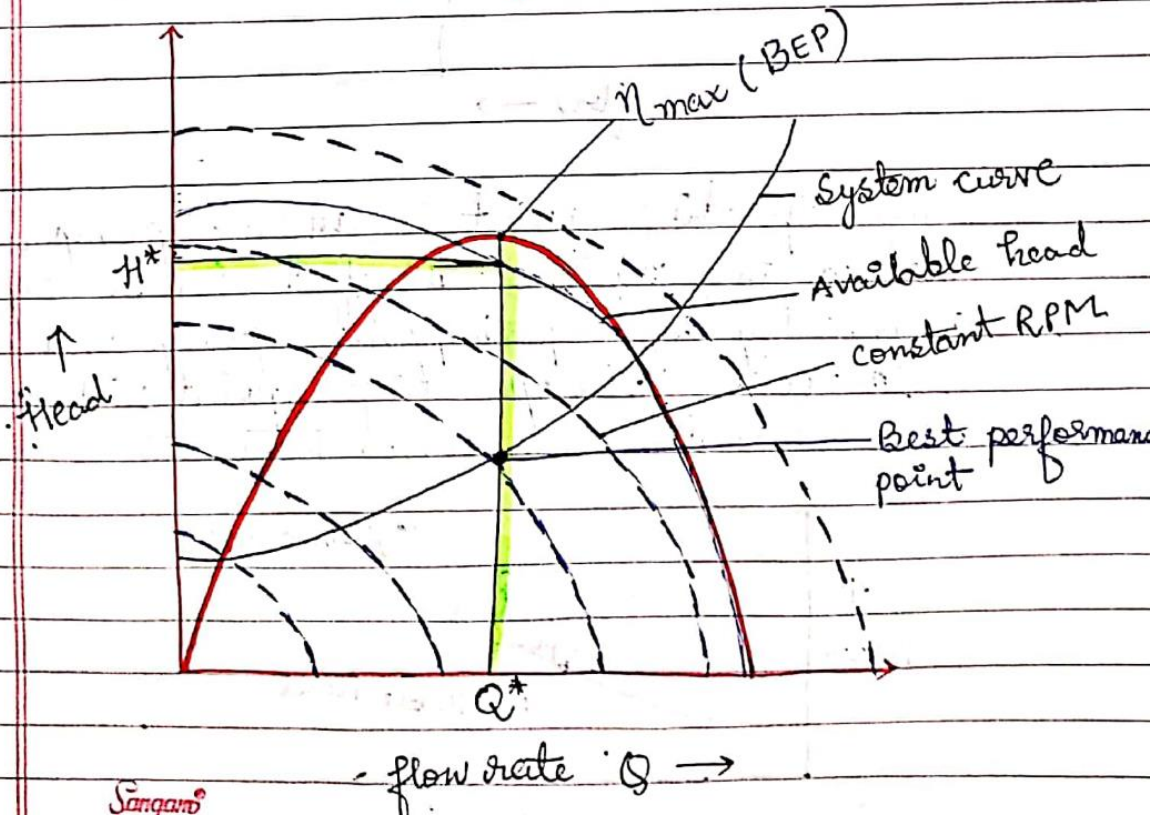 η max (BEP)
System curve
H*
Available head
↑
constant R.P.M.
Head
Best performanc
point
Q*
flow rate Q →
Sangam